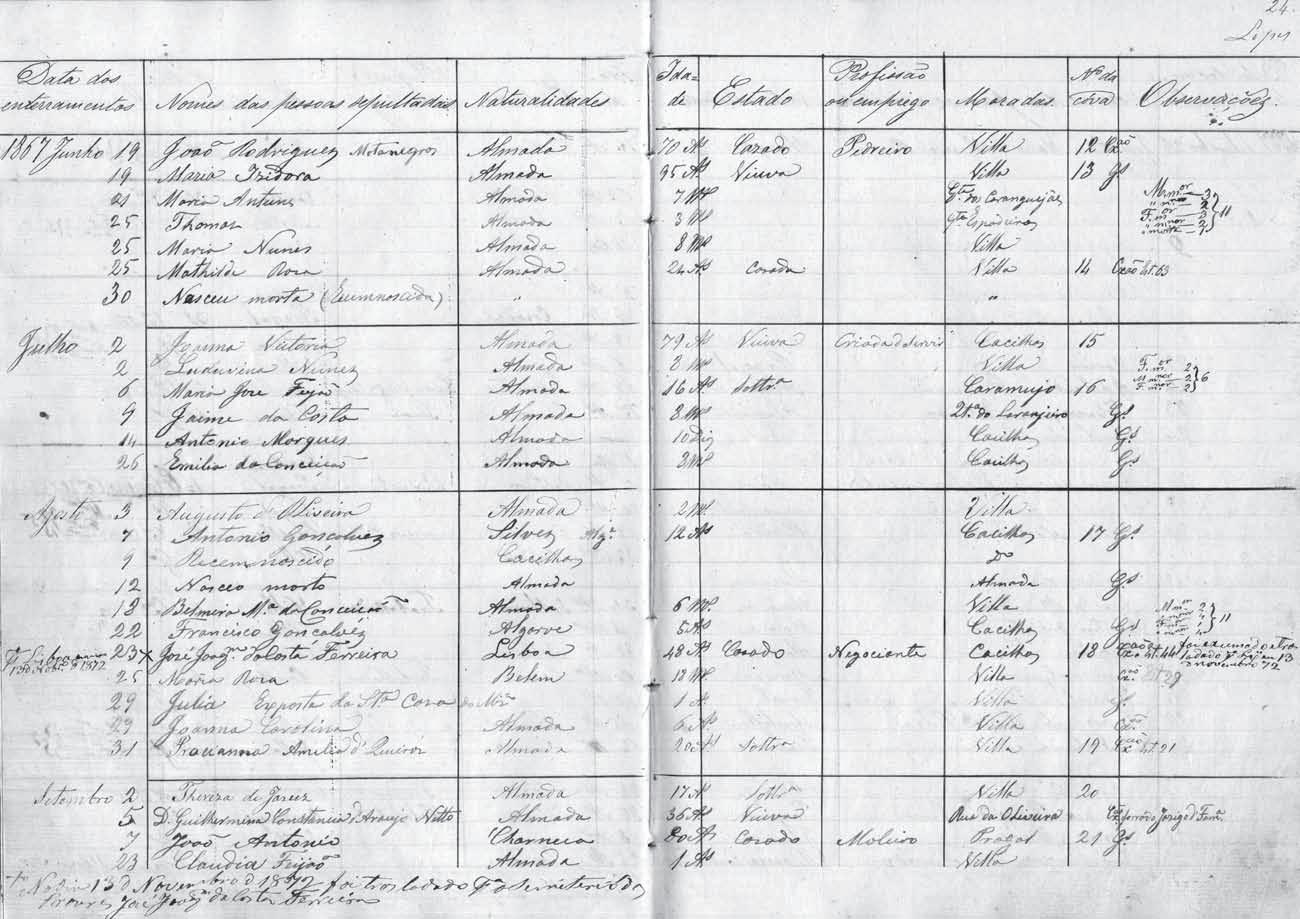 24.
Lopes
Data dos enterramentos Nomes das pessoas sepultadas Naturalidades Idade Estado Profissão ou emprego Moradas Nº da cóva Observações
1867 Junho 19 João Rodrigues Almada 70 As Cazado Pedreiro Villa 12
19 Maria Izidora Almada 95 As Viuva Villa 13 Gs
21 Maria Antunes Almada 7 Ms
25 Thomas Almada 3 Ms
25 Maria Nunes Almada 8 Ms Villa
25 Mathilde Roza Almada 24 As Cazada Villa 14
30 Nasceu morta "
Julho 2 Joanna Victoria Almada 79 As Viuva Criada de servir Cacilhas 15
2 Ludovina Nunes Almada 8 Ms Villa
6 Maria Jose Feijã Almada 16 As Soltrª Caramujo 16
9 Jaime da Costa Almada 8 Ms Qtª do Laranjeiro Gs
14 Antonio Marques Almada 10 Cacilhas Gs
26 Emilia da Conceição Almada 3 Ms Cacilhas Gs
Agosto 3 Augusto d'Oliveira Almada 2 Ms Villa
7 Antonio Gonçalves Silves 12 As Cacilhas 17 Gs
9 Recemnascido Cacilhas Do
12 Nasceo morto Almada Almada Gs
18 Belmira Mª da Conceição Almada 6 Ms Villa
22 Francisco Gonçalves Algarve 5 As Cacilhas Gs
23 x José Joaqm da Costa Ferreira Lisboa 48 As Cazado Negociante Cacilhas 18
25 Maria Roza Belem 18 Ms Villa
29 Julia Exposta da Sta Caza da Mia 1 A. Villa Gs
29 Joanna Carolina Almada 6 As Villa
31 Amelia d'Queiroz Almada 20 As Soltrª Villa 19
Setembro 2 Thereza de Jesus Almada 17 As Soltrª Villa 20
5 D. Guilhermina Constancia d'Araujo Netto Almada 36 As Viuva Rua da Oliveira
7 João Antonio Charneca 80 As Cazado Moleiro Pragal 21 Gs
23 Claudia Feijão Almada 1 As Villa
13 d Novembro d 1872 foi trasladado
José Joaqm da Costa Ferreira